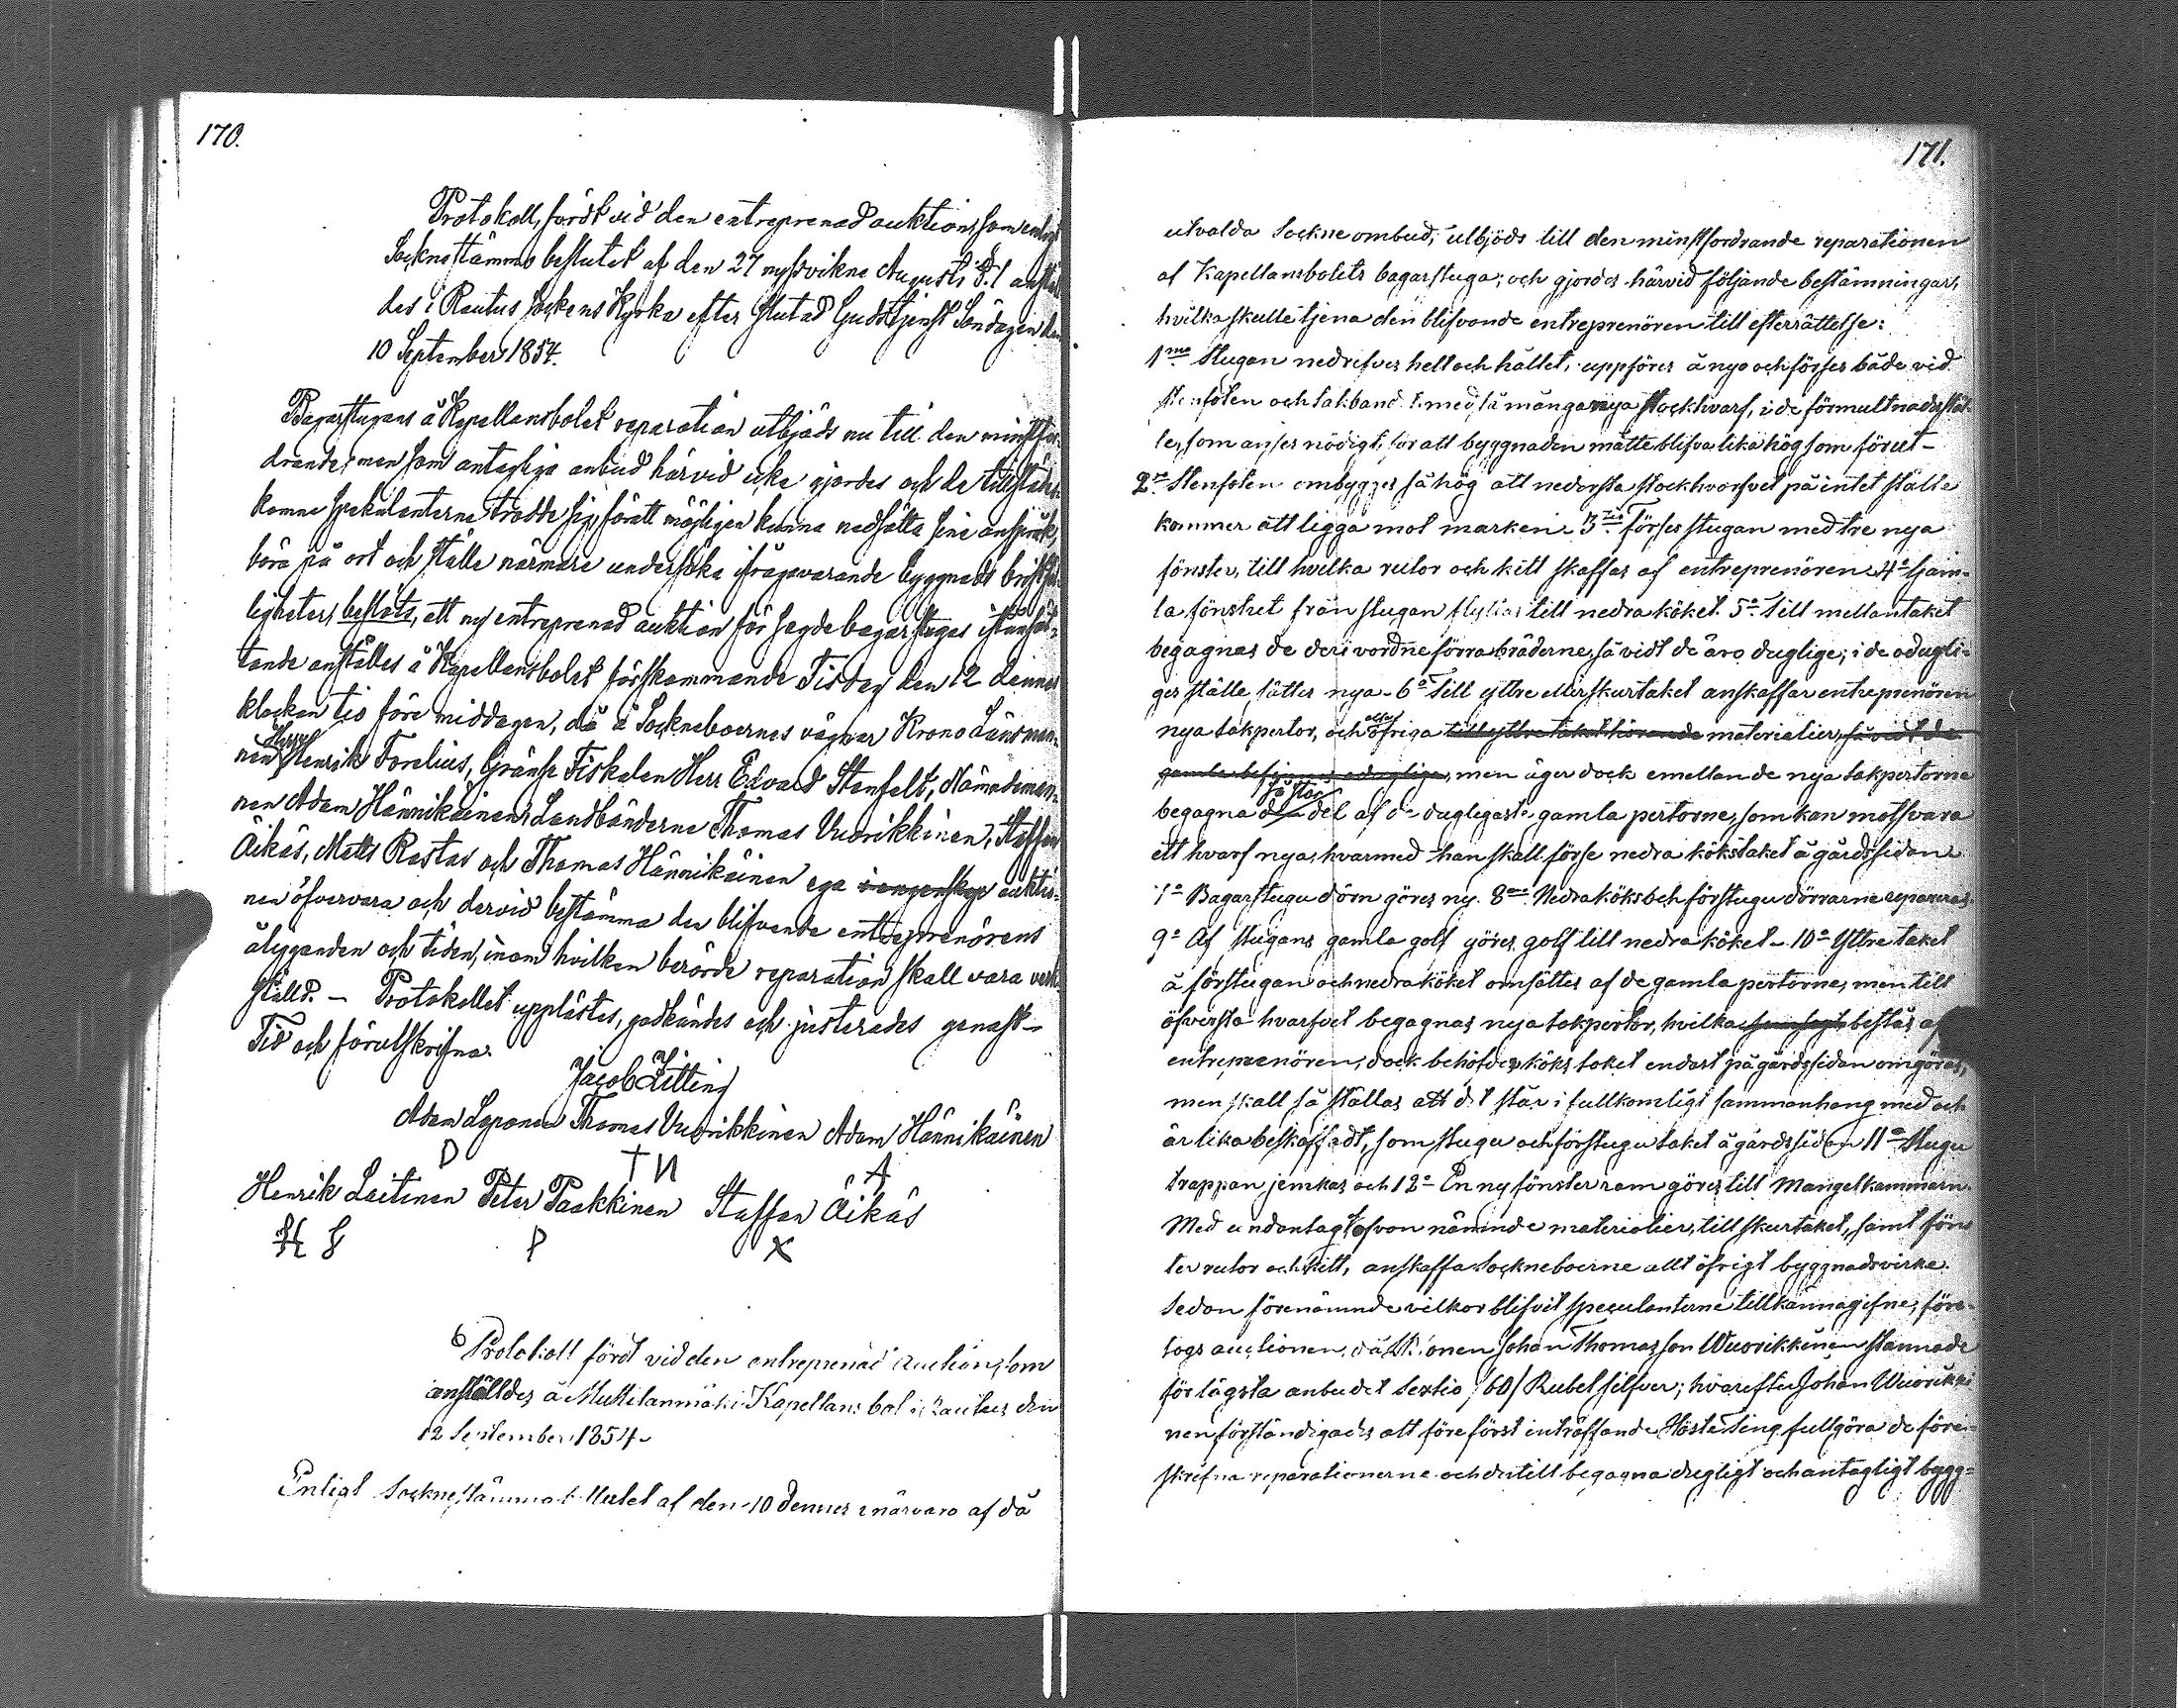 170.
Protokoll, fördt vid den entreprenad auktion, som enligt
Sockne stämmo beslutet af den 27 nyssvikne Augusti d.å anstäl
des i Rautus Sockens Kyrka efter slutad Gudstjenst Söndagen den
10 September 1854.
Bagarstugans å Kapellansbolet reparation utbjöds nu till den minstfor-
drande; men som antagliga anbud härvid icke gjordes och de tillstädes-
komne spekulanterne trodde sig, för att möjligen kunna nedsätta sine anspråk,
böra på ort och ställe närmare undersöka ifrågavarande byggnads bristfäl-
ligheter, beslöts, att ny entreprenad auktion för sagde bagarstugas iståndsät-
tande anställes å Kapellansbolet förstkommande Tisdag den 12 dennes
klockan tio före middagen, då å Sockneboernes vägnar Krono Länsman-
nen Herr Henrik Forelius, Gränse Fiskalen Herr Edvard Stenfelt, Nämndeman-
nen Adam Hännikäinen, Landbönderne Thomas Vuorikkinen, Staffan
Äikäs, Matts Rastas och Thomas Hännikäinen ega auktio-
nen öfvervara och dervid bestämma den blifvande entreprenörens
åligganden och tiden, inom hvilken berörde reparation skall vara verk-
ställd. – Protokollet upplästes, godkändes och justerades genast –
Tid och förutskrifna.
Jacob Zitting
Adam Loponen Thomas Vuorikkinen Adam Hännikäinen
D T V A
Henrik Laitinen Peter Paakkinen Staffan Äikäs
H L P X
6 Protokoll fördt vid den entreprenad auction, som
anställdes å Mustilanmäki Kapellans bol i Rautus den
12 September 1854 –
Enligt Sockne stämmobeslutet af den 10 dennes i närvaro af då
171.
utvalda Sockne ombud, utbjöds till den minstfordrande reparationen
af Kapellansbolets bagarstuga; och gjordes härvid följande bestämningar,
hvilka skulle tjena den blifvande entreprenören till efterrättelse:
1mo Stugan nedrifves helt och hållet, uppföres å nyo och förses både vid
stenfoten och takband t. med så många nya stockhvarf, i de förmultnades stäl-
le, som anses nödigt, för att byggnaden måtte blifva lika hög som förut –
2o Stenfoten ombygges så hög att nedersta stockhvarfvet på intet ställe
kommer att ligga mot marken. 3tio förses stugan med tre nya
fönster, till hvilka rutor och kitt skaffas af entreprenören. 4o Gam-
la fönstret från stugan flyttas till nedra köket. 5o Till mellantaket
begagnas de deri vordne förra bräderne, så vidt de äro duglige; i de odugli-
ges ställe sättes nya – 6o Till yttre eller skurtaket anskaffar entreprenören
nya takpertor, och alla öfriga till yttre taket hörande materialier, så vidt de
gamla befinnas oduglige, men äger dock emellan de nya takpertorne
begagna så stor del af de dugligaste gamla pertorne, som kan motsvara
ett hvarf nya, hvarmed han skall förse nedra kökstaket å gårdssidan
7o Bagarstugu dörn göres ny. 8o Nedra köks och förstugu dörrarne repareras.
9o Af stugans gamla golf göres golf till nedra köket – 10o Yttre taket
å förstugan och nedra köket omsättes af de gamla pertorne, men till
öfversta hvarfvet begagnas nya takpertor, hvilka bestås af
entreprenören, dock behöfdes köks taket endast på gårdssidan omgöras,
men skall så ställas att det står i fullkomligt sammanhang med och
är lika beskaffadt, som stugu och förstugu taket å gårdssidan 11o Stugu
trappan jemkas och 12o En ny fönster ram göres till Mangelkammarn.
Med undantag af ofvan nämnde materialier, till skurtaket, samt föns
ter rutor och kitt, anskaffa sockneboerne allt öfrigt byggnadsvirke.
Sedan förenämnde vilkor blifvit speculanterne tillkännagifne, före-
togs auctionen, då Bonden Johan Thomasson Wuorikkinen stannade
för lägsta anbudet sextio /60/ Rubel silfver; hvarefter Johan Wuorikki
nen förständigades att före först inträffande Höste Ting fullgöra de före-
skrefna reparationerne och dertill begagna dugligt och antagligt bygg=